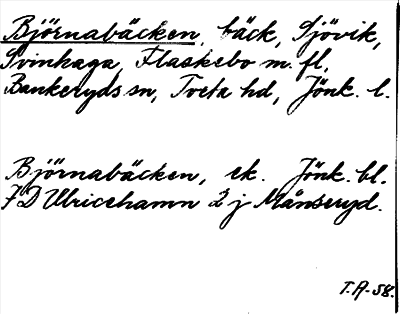 Björnabäcken, bäck, Sjövik,
Svinhaga, Flaskebo m. fl,
Bankeryds sn, Tveta hd, Jönk. l.
Björnabäcken, ek. Jönk. bl.
7 D Ulricehamn 2 j Månseryd.
T.A-58.